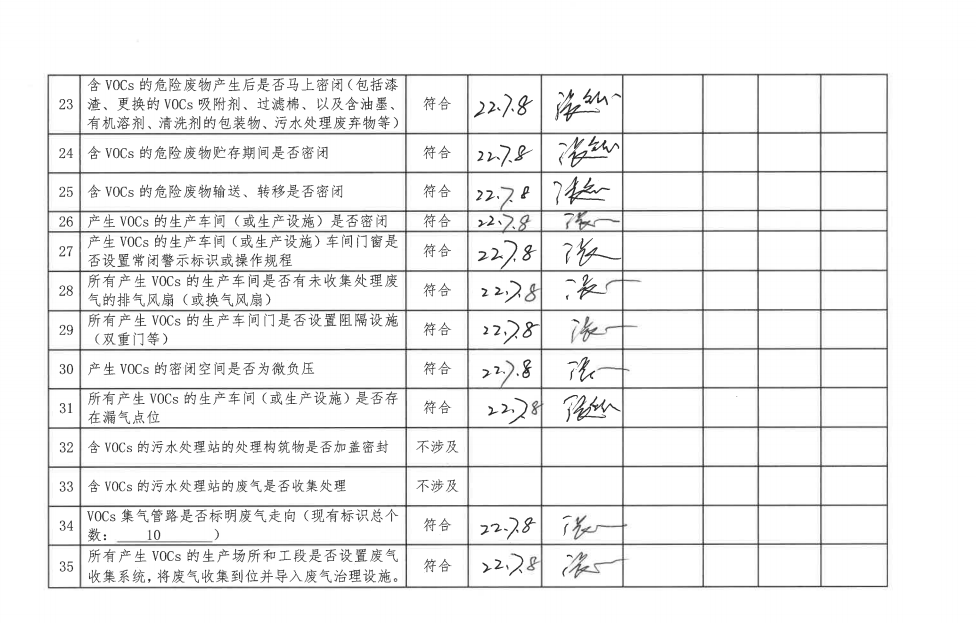 23 含 VOCs 的危险废物产生后是否马上密闭（包括漆
渣、更换的 VOCs 吸附剂、过滤棉、以及含油墨、 符合 22.7.8
有机溶剂、清洗剂的包装物、污水处理废弃物等）
24 含 VOCs 的危险废物贮存期间是否密闭 符合 22.7.8
25 含 VOCs 的危险废物输送、转移是否密闭 符合 22.7.8
26 产生 VOCs 的生产车间（或生产设施）是否密闭 符合 22.7.8
27 产生 VOCs 的生产车间（或生产设施）车间门窗是 符合 22.7.8
否设置常闭警示标识或操作规程
28 所有产生 VOCs 的生产车间是否有未收集处理废 符合 22.7.8
气的排气风扇（或换气风扇）
29 所有产生 VOCs 的生产车间门是否设置阻隔设施 符合 22.7.8
（双重门等）
30 产生 VOCs 的密闭空间是否为微负压 符合 22.7.8
31 所有产生 VOCs 的生产车间（或生产设施）是否存 符合 22.7.8
在漏气点位
32 含 VOCs 的污水处理站的处理构筑物是否加盖密封 不涉及
33 含 VOCs 的污水处理站的废气是否收集处理 不涉及
34 VOCs 集气管路是否标明废气走向（现有标识总个 符合 22.7.8
数：10）
35 所有产生 VOCs 的生产场所和工段是否设置废气 符合 22.7.8
收集系统，将废气收集到位并导入废气治理设施。